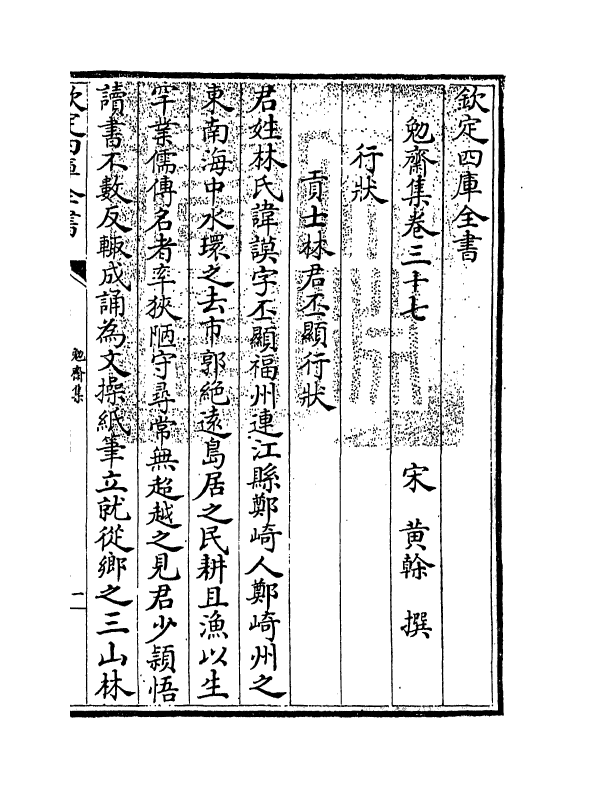 欽定四庫全書
勉齋集卷三十七
宋 黃榦 撰
行狀
貢士林君丕顯行狀
君姓林氏諱謨字丕顯福州連江縣鄭崎人鄭崎州之
東南海中水環之去市郭絕遠島居之民耕且漁以生
罕業儒傳名者率狹陋守尋常無超越之見君少穎悟
讀書不數反輙成誦為文操紙筆立就從鄉之三山林
欽定四庫全書
勉齋集
一